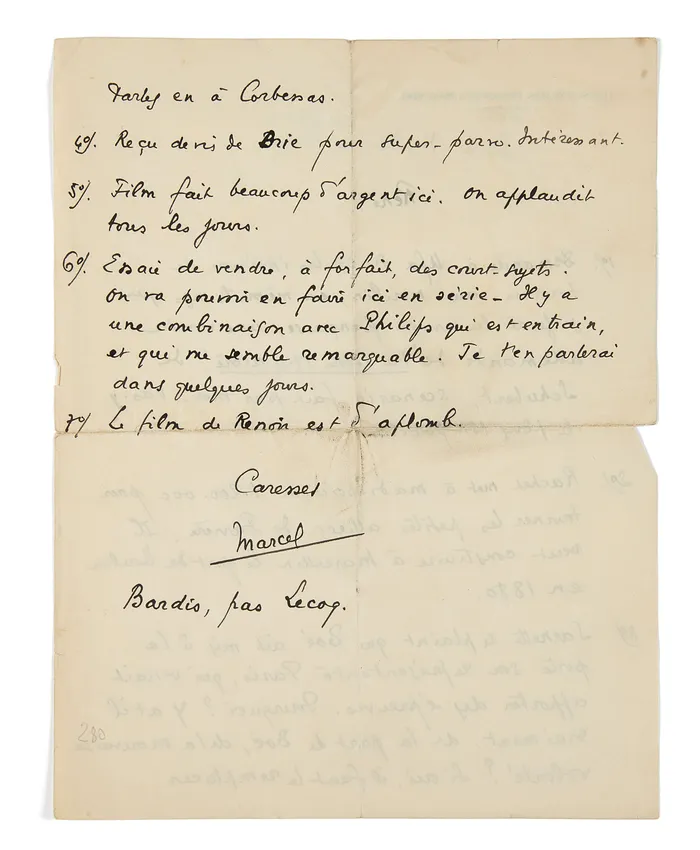 Parles en à Corbessas.
4°/. Reçu devis de Brie pour super-parvo. Intéressant.
5°/. Film fait beaucoup d'argent ici. On applaudit
tous les jours.
6°/. Essaie de vendre, à forfait, des court-sujets.
On va pouvoir en faire ici en série - Il y a
une combinaison avec Philips qui est en train,
et qui me semble remarquable. Je t'en parlerai
dans quelques jours.
7°/ Le film de Renoir est d'aplomb.
Caresses
Marcel
Bardis, pas Lecoq.
280